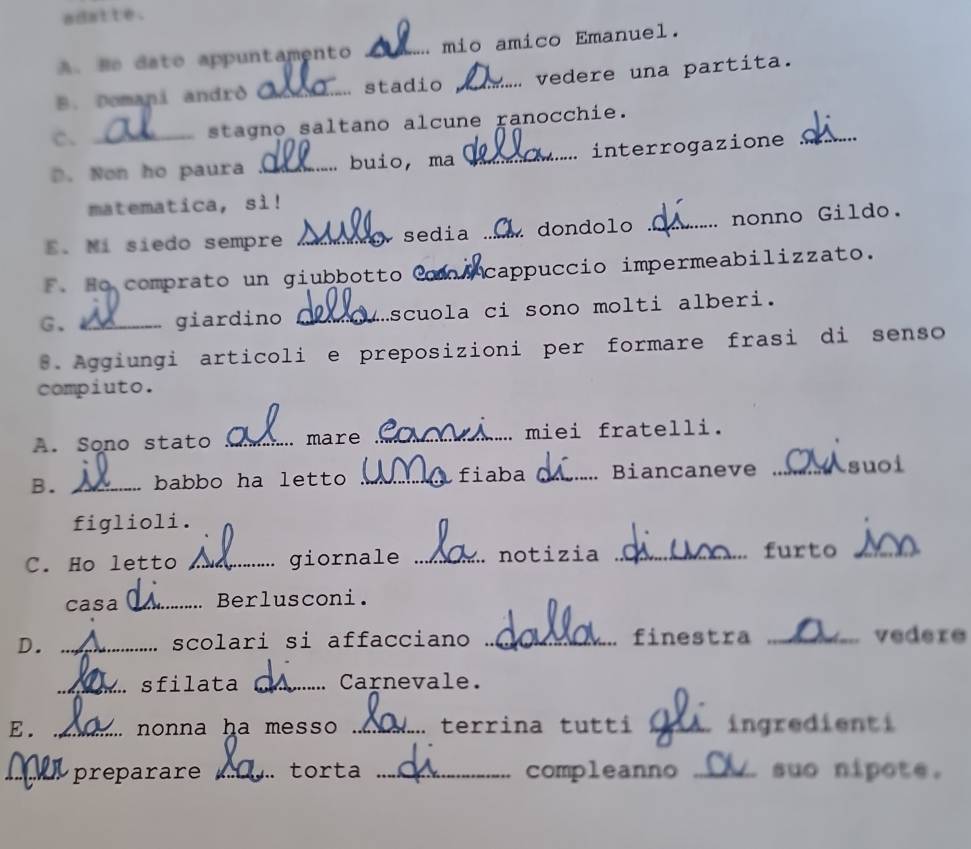 adatte.
A. Ho dato appuntamento al mio amico Emanuel.
B. Domani andrò allo stadio a vedere una partita.
C. al stagno saltano alcune ranocchie.
D. Non ho paura dell buio, ma della interrogazione di
matematica, sì!
E. Mi siedo sempre sulla sedia a dondolo di nonno Gildo.
F. Ho comprato un giubbotto cappuccio impermeabilizzato.
G. il giardino della scuola ci sono molti alberi.
8. Aggiungi articoli e preposizioni per formare frasi di senso
compiuto.
A. Sono stato al mare cami miei fratelli.
B. il babbo ha letto una fiaba di Biancaneve ai suoi
figlioli.
C. Ho letto il giornale la notizia di un furto in
casa di Berlusconi.
D. i scolari si affacciano dalla finestra a vedere
la sfilata di Carnevale.
E. la nonna ha messo la terrina tutti gli ingredienti
per preparare la torta di compleanno a suo nipote.